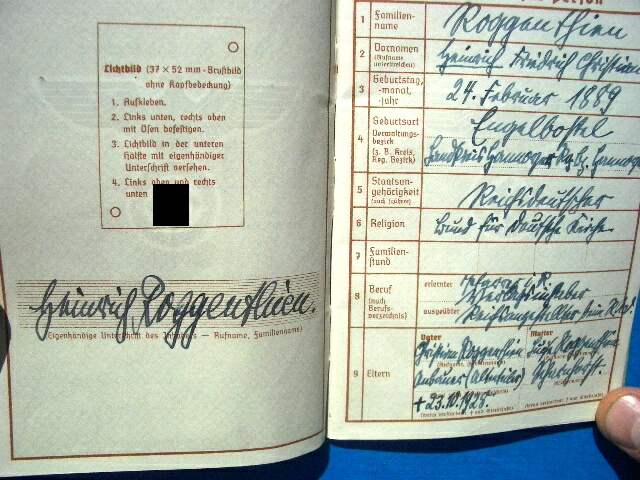 Lichtbild (37 × 52 mm - Brustbild
ohne Kopfbedeckung)
1. Aufkleben.
2. Links unten, rechts oben
mit Ösen befestigen.
3. Lichtbild in der unteren
Hälfte mit eigenhändiger
Unterschrift versehen.
4. Links oben und rechts
unten
Heinrich Roggenthien.
(Eigenhändige Unterschrift des Inhabers — Rufname, Familienname)
1 Familien-
name
Roggenthien
2 Vornamen
(Rufname
unterstreichen)
Heinrich Friedrich Christian
3 Geburtstag,
-monat,
-jahr
24. Februar 1889
4 Geburtsort
Verwaltungs-
bezirk
(z. B. Kreis,
Reg. Bezirk)
Engelbostel
Landkreis Hannover
5 Staatsan-
gehörigkeit
(auch frühere)
Reichsdeutscher
6 Religion
Bund für Deutsche Kirche
7 Familien-
stand
8 Beruf
(nach
Berufs-
verzeichnis)
erlernter
ausgeübter
9 Eltern
Vater
Christian Roggenthien
† 23.10.1925.
Mutter
Roggenthien